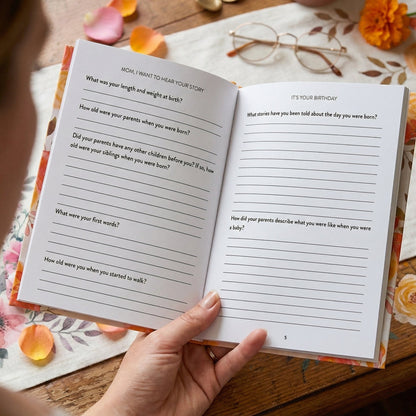 MOM, I WANT TO HEAR YOUR STORY
What was your length and weight at birth?
How old were your parents when you were born?
Did your parents have any other children before you? If so, how
old were your siblings when you were born?
What were your first words?
How old were you when you started to walk?
IT'S YOUR BIRTHDAY
What stories have you been told about the day you were born?
How did your parents describe what you were like when you were
a baby?
5